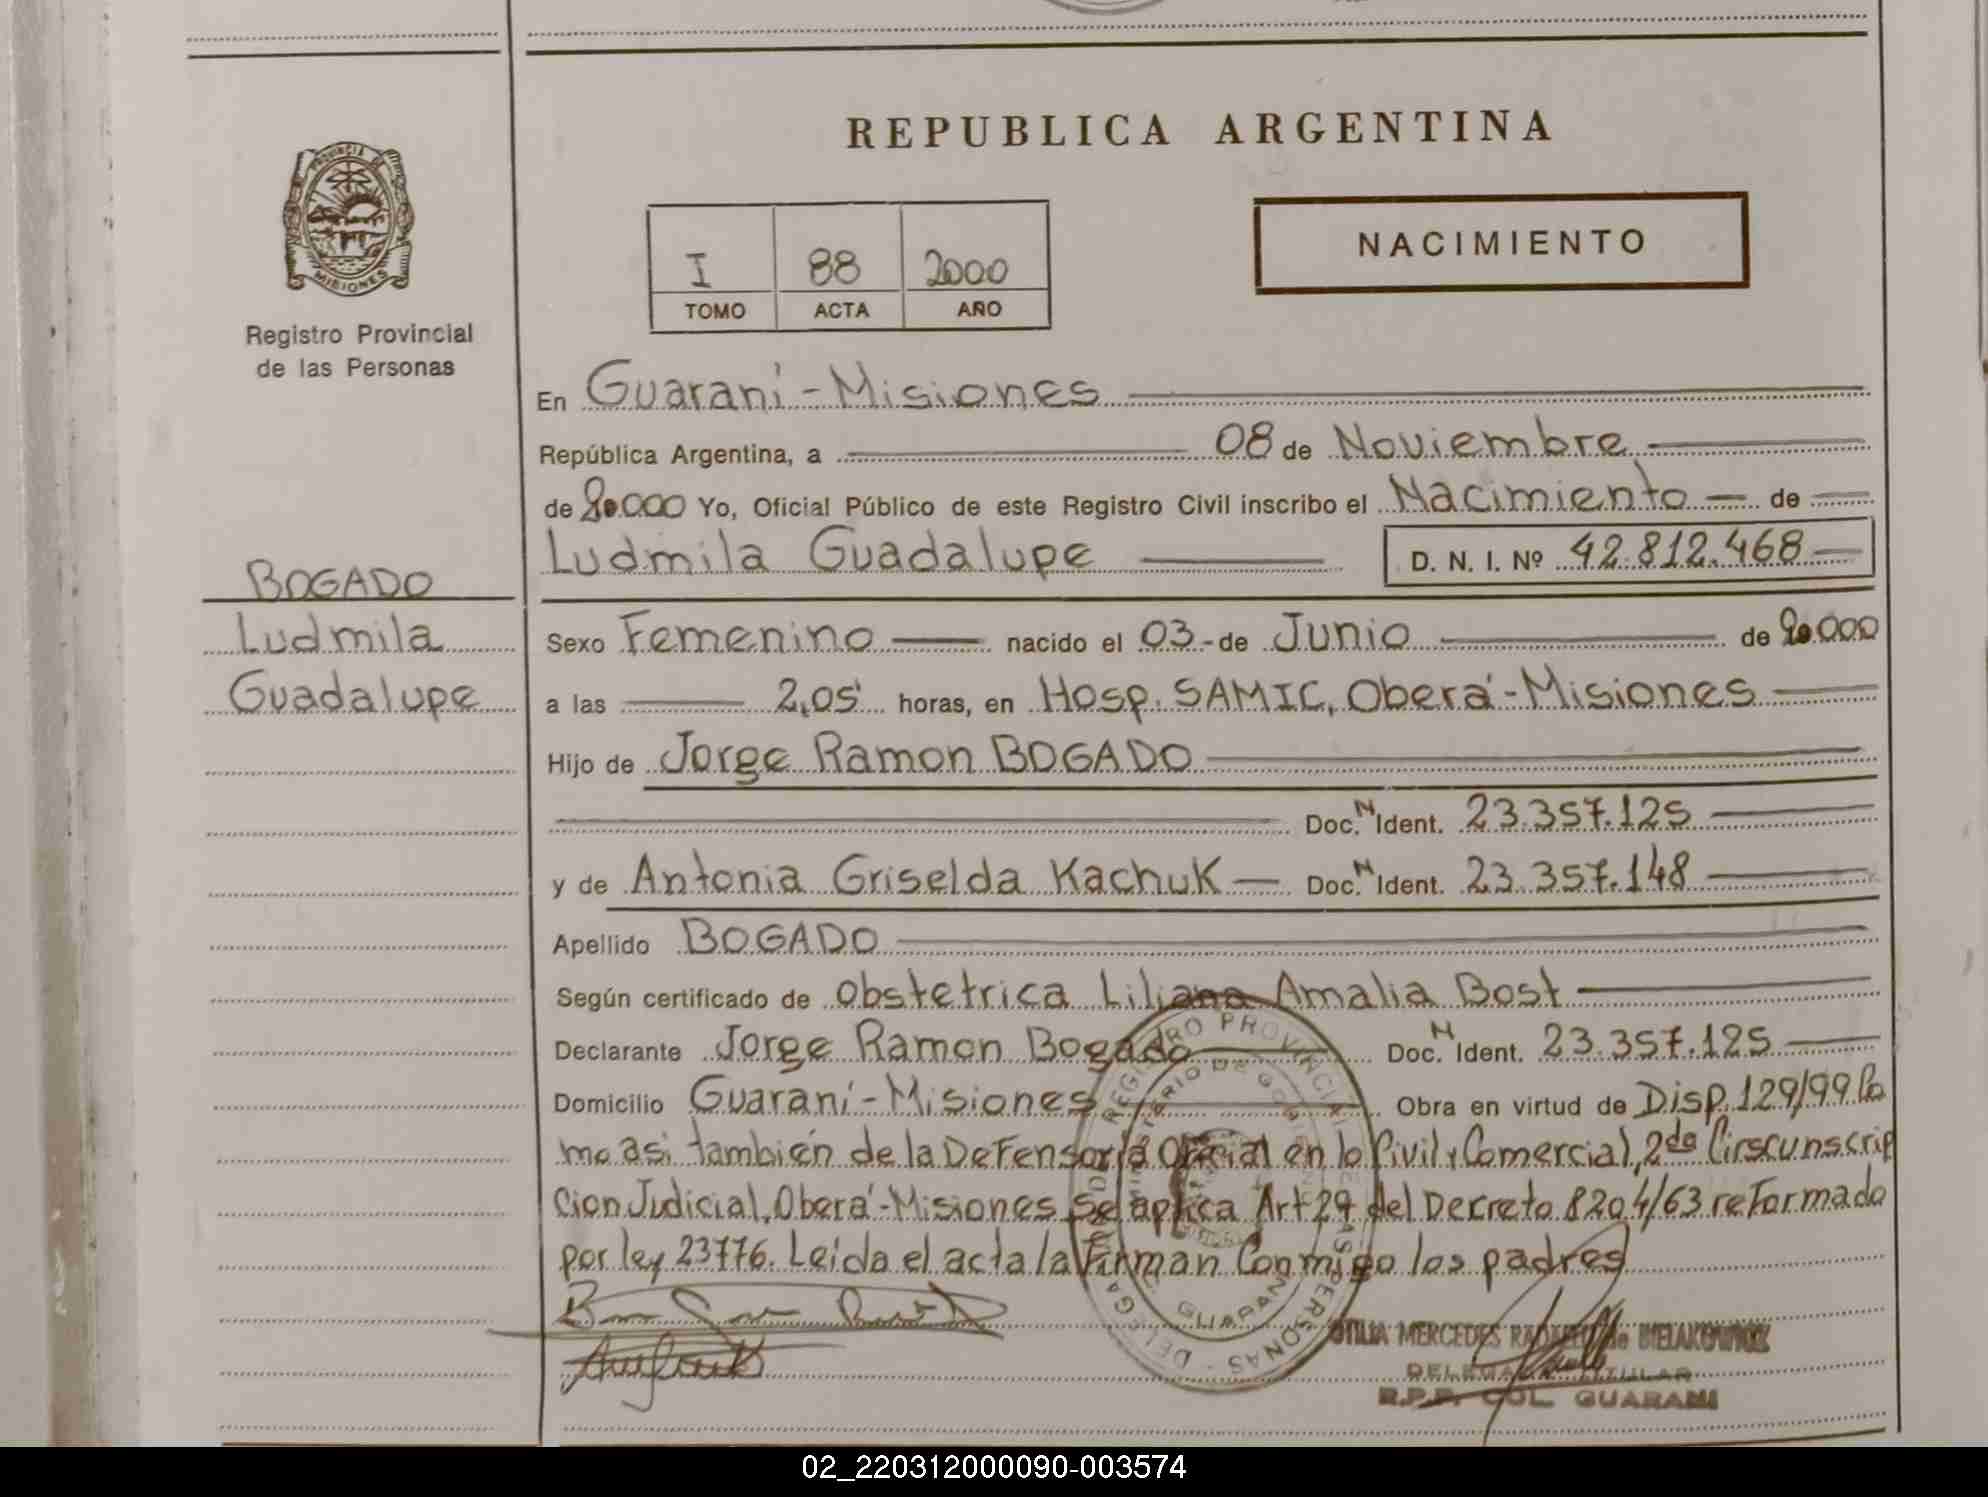 REPUBLICA ARGENTINA
PROVINCIA DE
MISIONES
Registro Provincial
de las Personas
I 88 2000
TOMO ACTA AÑO
NACIMIENTO
En Guaraní - Misiones
República Argentina, a 08 de Noviembre
de 20.000 Yo, Oficial Público de este Registro Civil inscribo el Nacimiento de
Ludmila Guadalupe D. N. I. Nº 42.812.468
BOGADO
Ludmila
Guadalupe
Sexo Femenino nacido el 03 - de Junio de 20.000
a las 2,05 horas, en Hosp. SAMIC, Oberá - Misiones
Hijo de Jorge Ramon BOGADO
Doc. N Ident. 23.357.125
y de Antonia Griselda Kachuk Doc. N Ident. 23.357.148
Apellido BOGADO
Según certificado de Obstetrica Liliana Amalia Bost
Declarante Jorge Ramon Bogado Doc. N Ident. 23.357.125
Domicilio Guaraní - Misiones Obra en virtud de Disp. 129/99 Co
mo asi también de la Defensoría Oficial en lo Civil y Comercial, 2da Cirscunscrip
cion Judicial, Oberá - Misiones se aplica Art 29 del Decreto 8204/63 reformado
por ley 23776. Leída el acta la firman conmigo los padres
REGISTRO PROVINCIAL DE LAS PERSONAS - DELEGA
MINISTERIO DE GOBIERNO
GUARANI
OTILIA MERCEDES de BIELAKOWICZ
DELEGADA TITULAR
R.P.P. COL. GUARANI
02_220312000090-003574